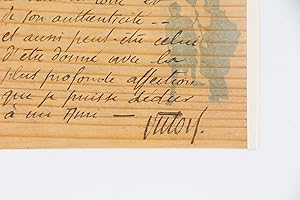 de son authenticité --
et aussi peut-être celui
d'être donné avec la
plus profonde affection
que je puisse dédier
à un Ami —